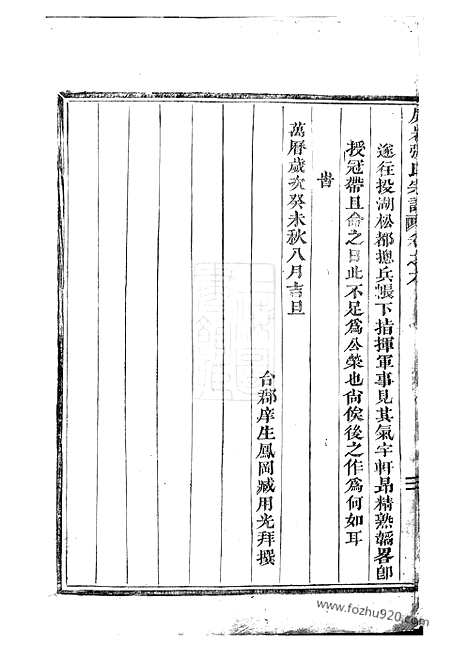 遂往投湖松都摠兵張下指揮軍事見其氣宇軒昂精熟韜畧卽
授冠帶且命之曰此不足爲公榮也尙俟後之作爲何如耳
旹
萬曆歲次癸未秋八月吉旦
台郡庠生鳳岡臧用光拜撰
www.fozhu920.com